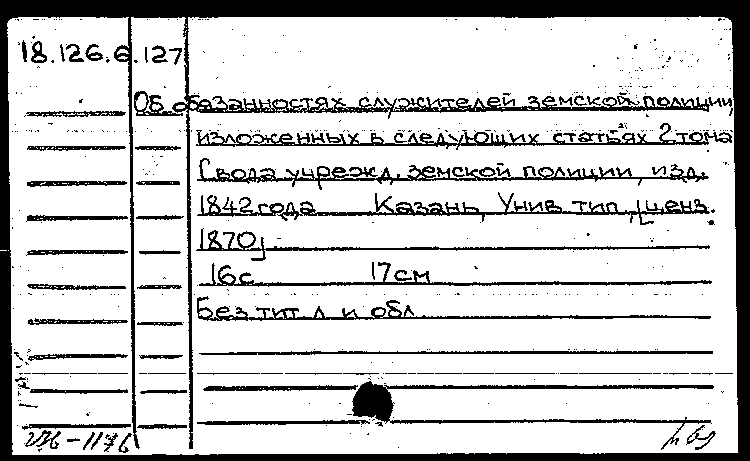 18.126.6.127
Об обязанностях служителей земской полиции,
изложенных в следующих статьях 2 тома
Свода учрежд. земской полиции, изд.
1842 года Казань, Унив. тип., [ценз.
1870]
16 с 17 см
Без тит л и обл.
276-1176